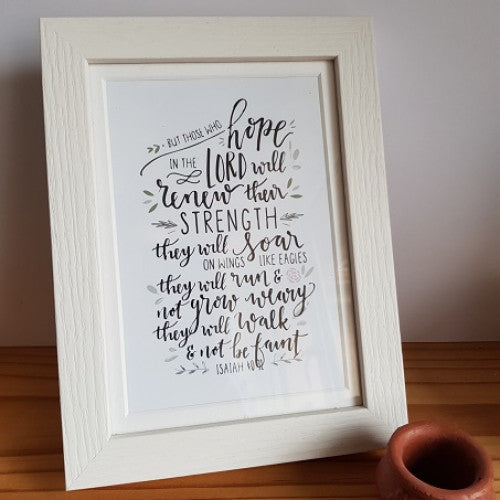 BUT THOSE WHO hope
IN THE LORD will
renew their
STRENGTH
they will soar
ON WINGS LIKE EAGLES
they will run &
not grow weary
they will walk
& not be faint
ISAIAH 40:31